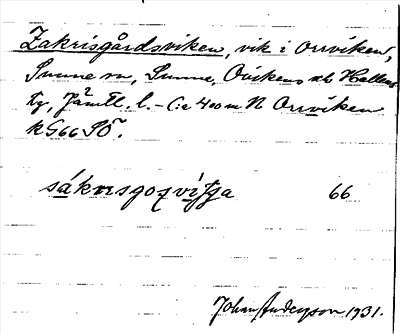 Zakrisgårdsviken, vik i Orrviken,
Sunne sn, Sunne, Ovikens o. Hallens
tg, Jämtl. l. – C:a 400 m N Orrviken
k G66 SO.
66
John Anderson 1931.